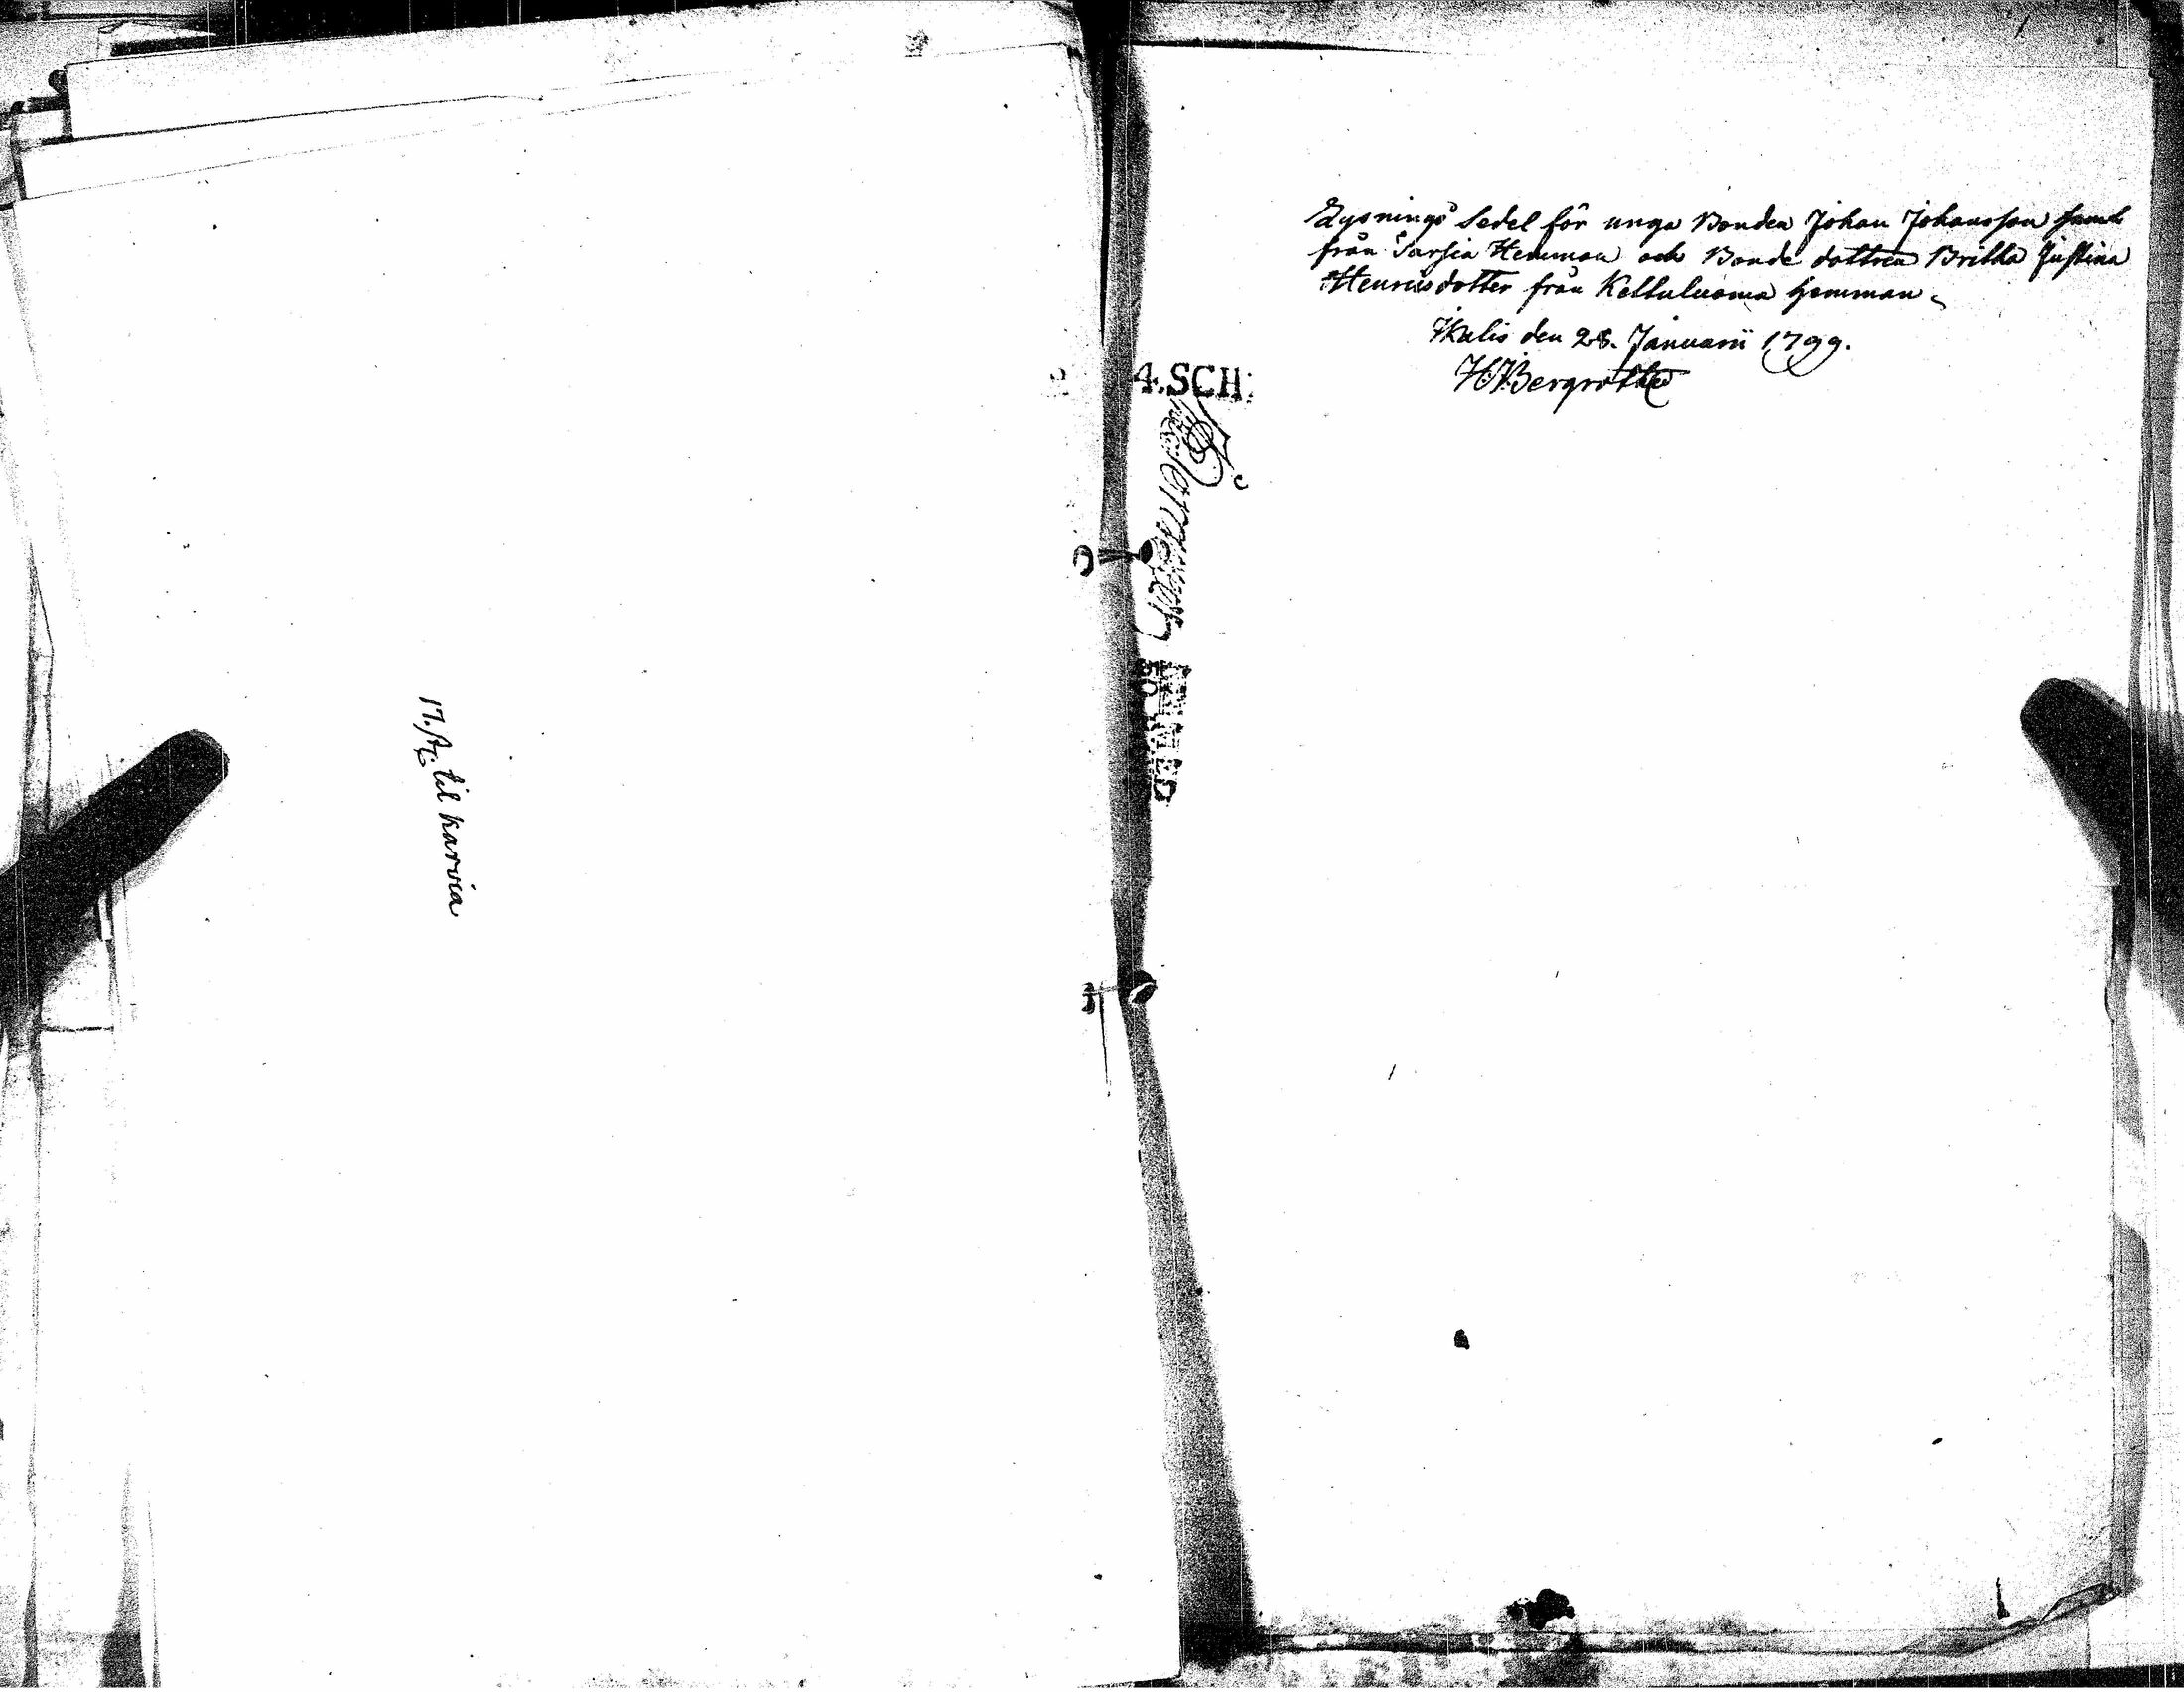 17. til karvia
4.SCH
Lysnings Sedel för unga Bonden Johan Johansson
från Sarsia Hemman och Bonde dottren Britta Justina
Henricsdotter från Kelluluoma hemman
Ikalis den 28. Januarii 1799.
HJBergroth